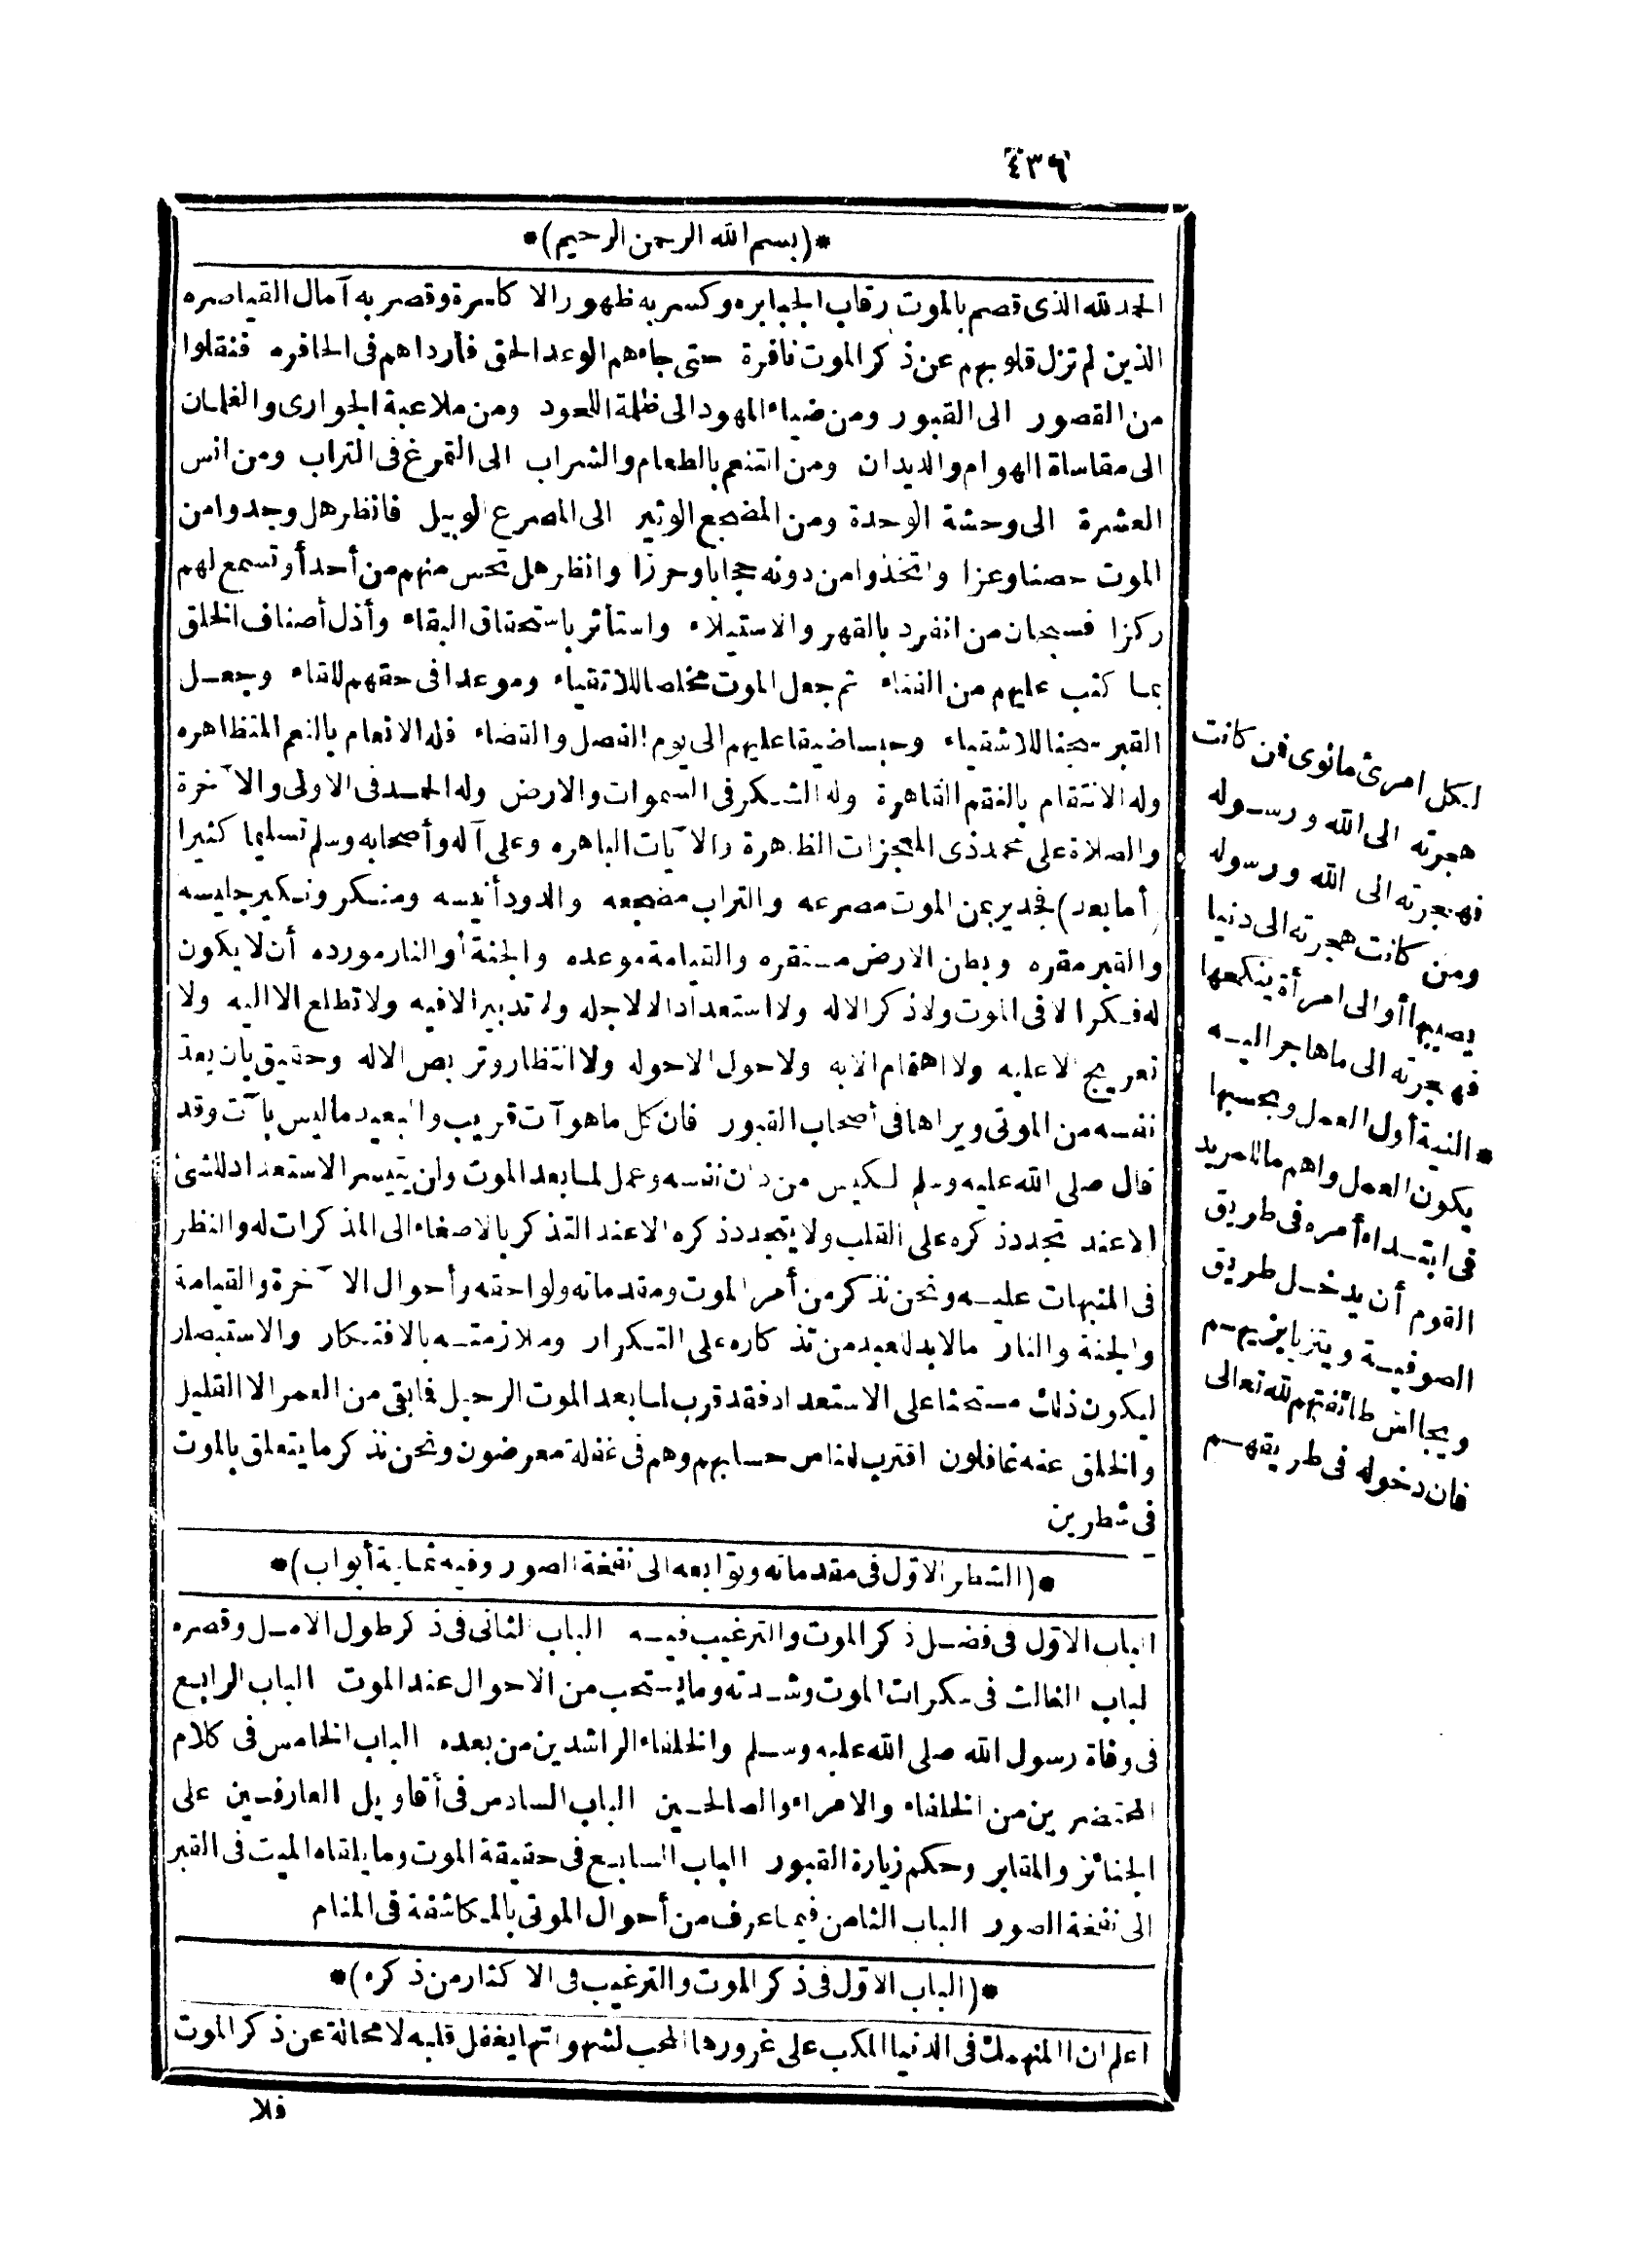 ٤٣٦
*(بسم الله الرحمن الرحيم)*
الحمد لله الذى قصم بالموت رقاب الجبابره وكسر به ظهور الاكاسرة وقصر به آمال القياصره
الذين لم تزل قلوبهم عن ذكر الموت نافرة حتى جاءهم الوعد الحق فأرداهم فى الحافره فنقلوا
من القصور الى القبور ومن ضياء المهود الى ظلمة اللحود ومن ملاعبة الجوارى والغلمان
الى مقاساة الهوام والديدان ومن التنعم بالطعام والشراب الى التمرغ فى التراب ومن انس
العشرة الى وحشة الوحدة ومن المضجع الوثير الى المصرع الوبيل فانظر هل وجدوا من
الموت حصنا وعزا واتخذوا من دونه حجابا وحرزا وانظر هل تحس منهم من أحد أو تسمع لهم
ركزا فسبحان من انفرد بالقهر والاستيلاء واستأثر باستحقاق البقاء وأذل أصناف الخلق
بما كتب عليهم من الفناء ثم جعل الموت مخلصا للاتقياء وموعدا فى حقهم للقاء وجعل
القبر سجنا للاشقياء وحبسا ضيقا عليهم الى يوم الفصل والقضاء فله الانعام بالنعم المتظاهره
وله الانتقام بالنقم القاهرة وله الشكر فى السموات والارض وله الحمد فى الاولى والآخرة
والصلاة على محمد ذى المعجزات الظاهرة والآيات الباهره وعلى آله وأصحابه وسلم تسليما كثيرا
(أما بعد) فجدير بمن الموت مصرعه والتراب مضجعه والدود أنيسه ومنكر ونكير جليسه
والقبر مقره وبطن الارض مستقره والقيامة موعده والجنة أو النار مورده أن لا يكون
له فكر الا فى الموت ولا ذكر الا له ولا استعداد الا لاجله ولا تدبير الا فيه ولا تطلع الا اليه ولا
تعريج الا عليه ولا اهتمام الا به ولا حول الا حوله ولا انتظار وتربص الا له وحقيق بأن يعد
نفسه من الموتى ويراها فى أصحاب القبور فان كل ما هو آت قريب والبعيد ما ليس بآت وقد
قال صلى الله عليه وسلم الكيس من دان نفسه وعمل لما بعد الموت ولن يتيسر الاستعداد للشئ
الا عند تجدد ذكره على القلب ولا يتجدد ذكره الا عند التذكر بالاصغاء الى المذكرات له والنظر
فى المنبهات عليه ونحن نذكر من أمر الموت ومقدماته ولواحقه وأحوال الآخرة والقيامة
والجنة والنار مالا بد للعبد من تذكاره على التكرار وملازمته بالافتكار والاستبصار
ليكون ذلك مستحثا على الاستعداد فقد قرب لما بعد الموت الرحيل فما بقى من العمر الا القليل
والخلق عنه غافلون اقترب للناس حسابهم وهم فى غفلة معرضون ونحن نذكر ما يتعلق بالموت
فى شطرين
*(الشطر الاول فى مقدماته وتوابعه الى نفخة الصور وفيه ثمانية أبواب)*
الباب الاول فى فضل ذكر الموت والترغيب فيه الباب الثانى فى ذكر طول الامل وقصره
لباب الثالث فى سكرات الموت وشدته وما يستحب من الاحوال عند الموت الباب الرابع
فى وفاة رسول الله صلى الله عليه وسلم والخلفاء الراشدين من بعده الباب الخامس فى كلام
المحتضرين من الخلفاء والامراء والصالحين الباب السادس فى أقاويل العارفين على
الجنائز والمقابر وحكم زيارة القبور الباب السابع فى حقيقة الموت وما يلقاه الميت فى القبر
الى نفخة الصور الباب الثامن فيما عرف من أحوال الموتى بالمكاشفة فى المنام
*(الباب الاول فى ذكر الموت والترغيب فى الاكثار من ذكره)*
اعلم ان المنهمك فى الدنيا المكب على غرورها المحب لشهواتها يغفل قلبه لا محالة عن ذكر الموت
فلا
لكل امرئ مانوى فمن كانت
هجرته الى الله ورسوله
فهجرته الى الله ورسوله
ومن كانت هجرته الى دنيا
يصيبها أو الى امرأة ينكحها
فهجرته الى ما هاجر اليه
* النية أول العمل وبحسبها
يكون العمل واهم ما للمريد
فى ابتداء أمره فى طريق
القوم أن يدخل طريق
الصوفية ويتزيا بزيهم
ويجالس طائفتهم لله تعالى
فان دخوله فى طريقهم